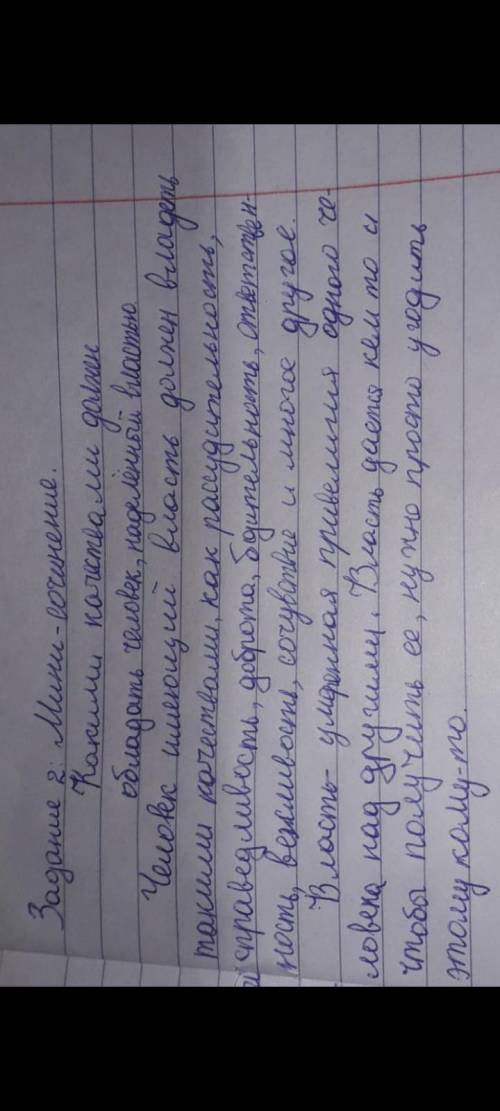 Задание 2: Мини-сочинение.
Какими качествами должен
обладать человек, наделённый властью
Человек имеющий власть должен владеть
такими качествами, как рассудительность,
справедливость, доброта, бдительность, ответствен-
ность, вежливость, сочувствие и многое другое.
Власть - привелигия одного че-
ловека над другими. Власть дается кем то и
чтобы получить ее, нужно просто угодить
этому кому-то.